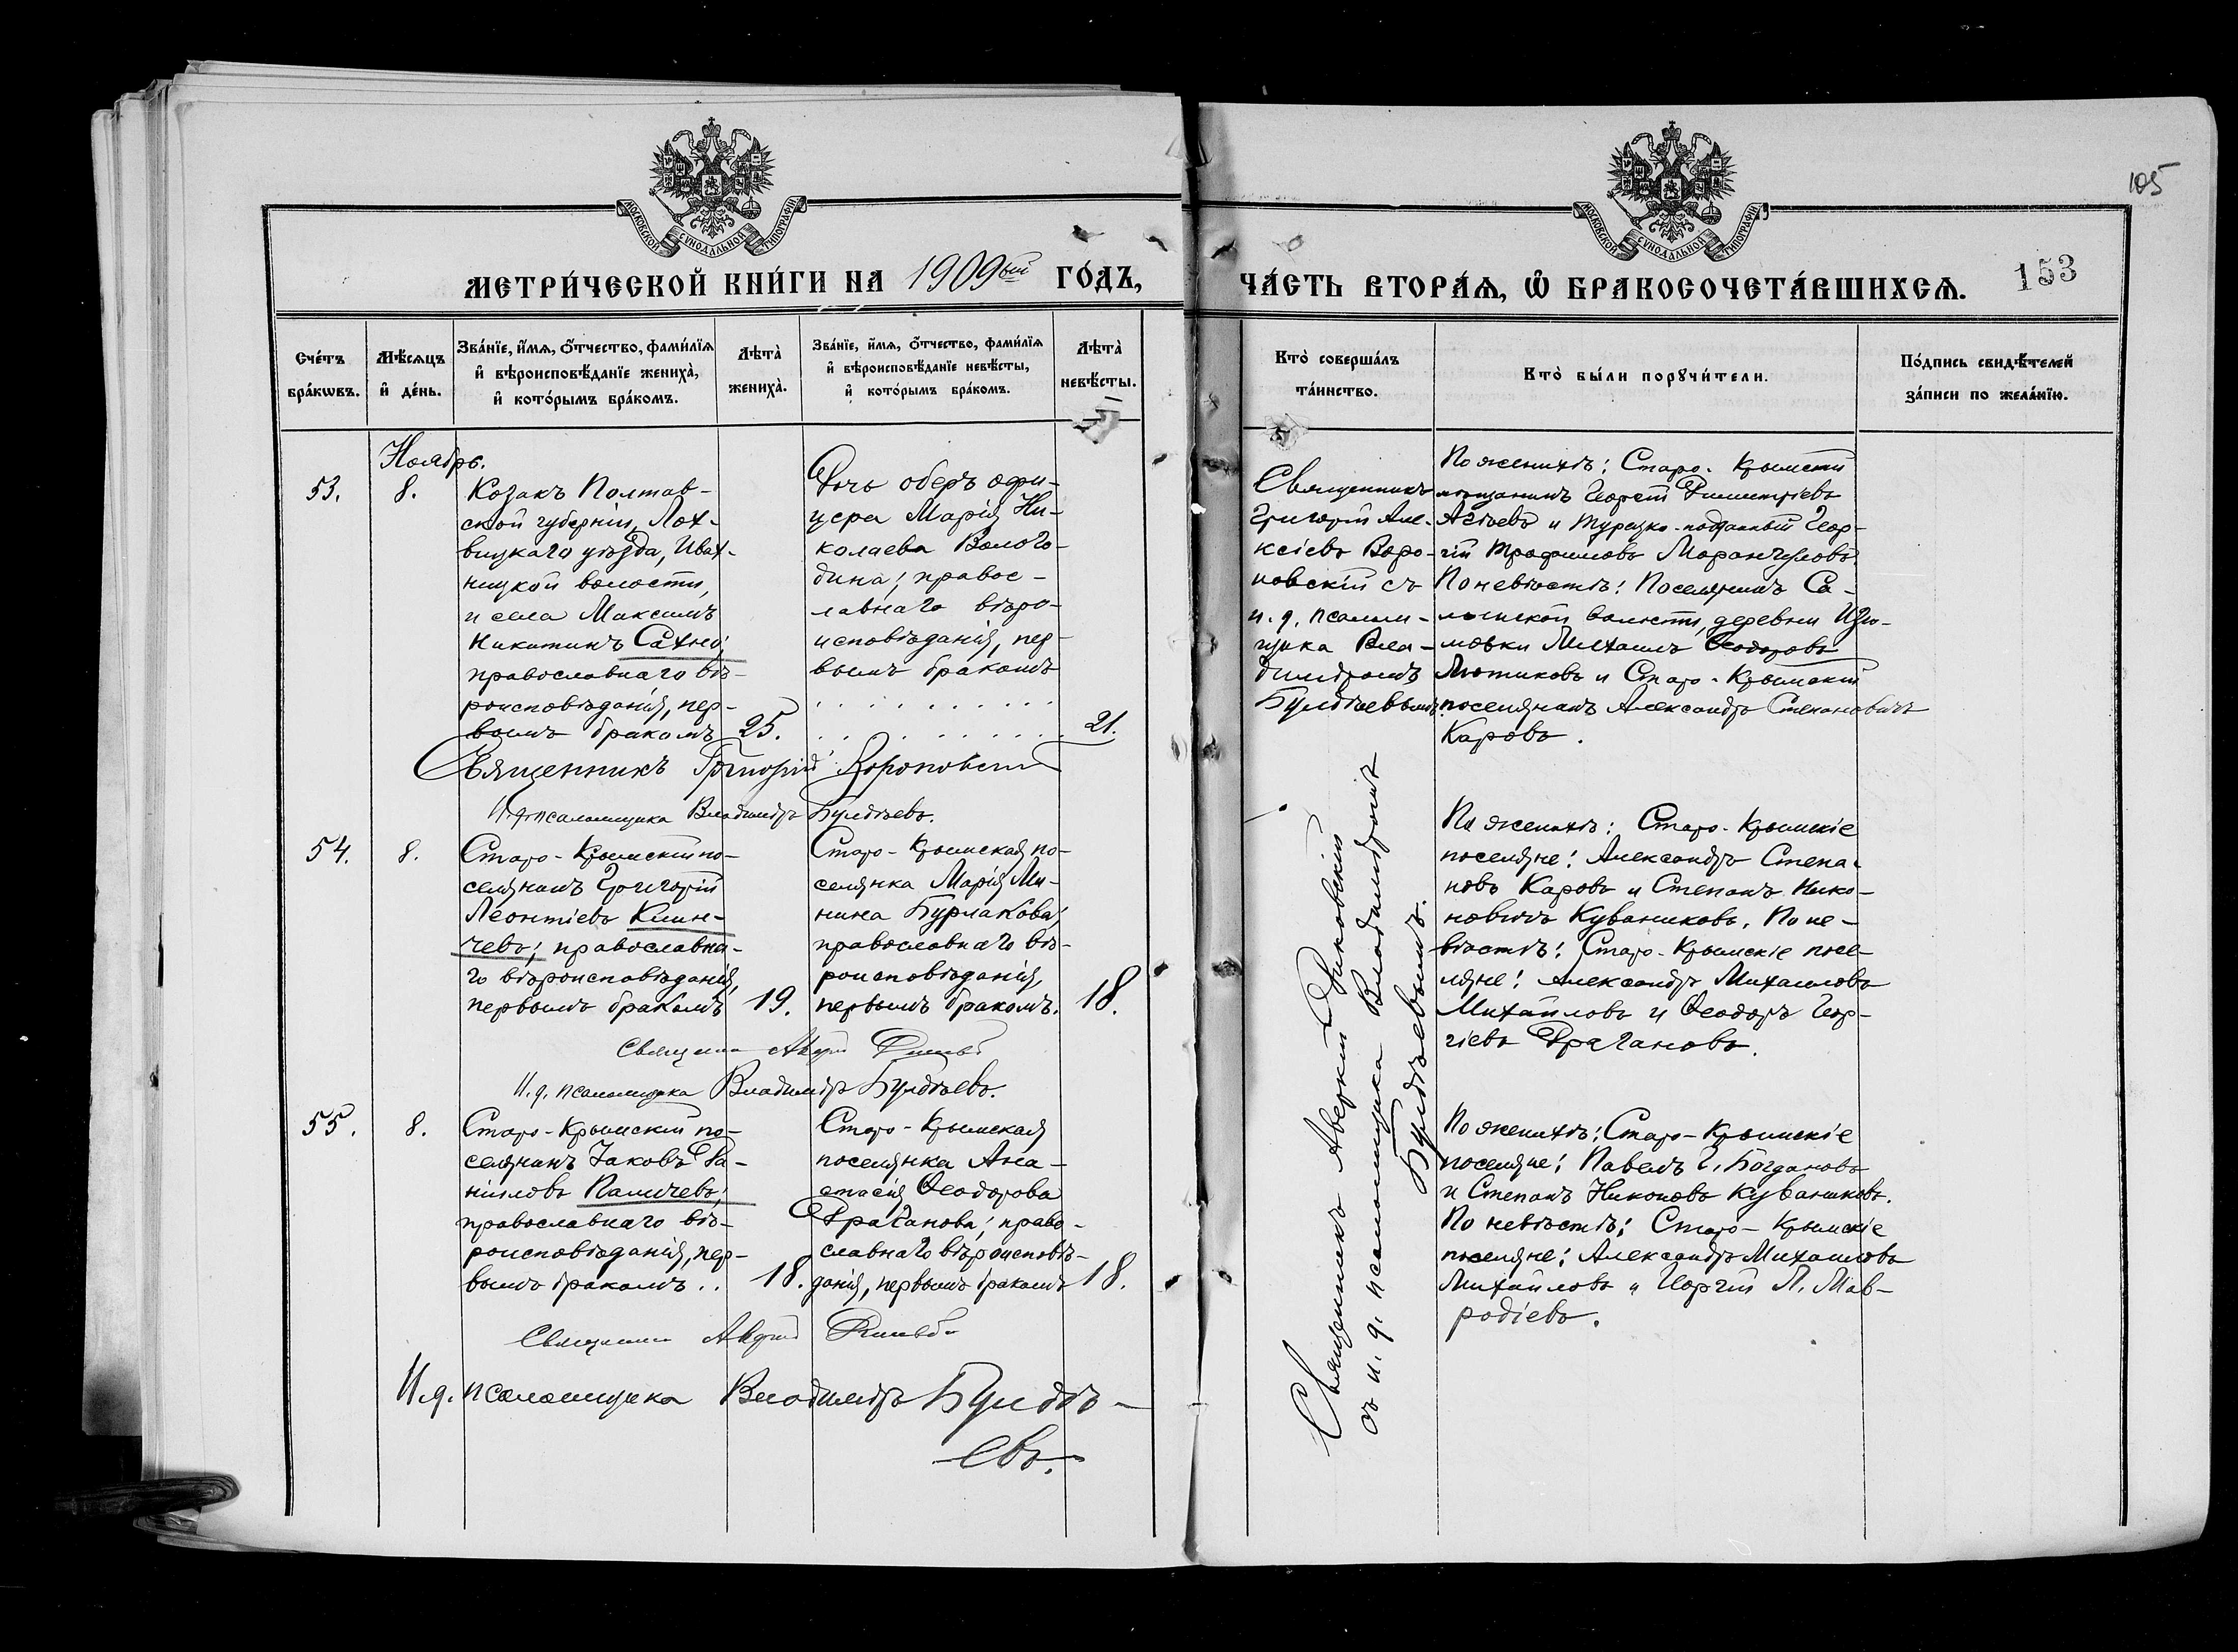 МОСКОВСКОЙ СѴНОДАЛЬНОЙ ТИПОГРАФІИ
МОСКОВСКОЙ СѴНОДАЛЬНОЙ ТИПОГРАФІИ
105
МЕТРИ́ЧЕСКОЙ КНИ́ГИ НА 1909ый ГО́ДЪ,
ЧА́СТЬ ВТОРА́Ѧ, Ѽ БРАКОСОЧЕТА́ВШИХСѦ.
153
Сче́тъ бра́кѡвъ.
Мѣ́сѧцъ и҆ де́нь.
Зва́нїе, и҆́мѧ, ѻ҆́тчество, фами́лїѧ
и҆ вѣроисповѣ́данїе жениха̀,
и҆ кото́рымъ бра́комъ.
Лѣта̀ жениха̀.
Зва́нїе, и҆́мѧ, ѻ҆́тчество, фами́лїѧ
и҆ вѣроисповѣ́данїе невѣ́сты,
и҆ кото́рымъ бра́комъ.
Лѣта̀ невѣ́сты.
Кто̀ соверша́лъ
та́инство.
Кто̀ бы́ли порꙋчи́тели.
По́дпись свидѣ́телей
за́писи по жела́нїю.
Ноябрь.
53.
8.
Козакъ Полтав-
ской губерніи, Лох-
вицкаго уѣзда, Ивах-
ницкой волости,
и села Максимъ
Никитинъ Сахно;
православнаго вѣ-
роисповѣданія, пер-
вымъ бракомъ
25.
Дочь оберъ офи-
цера Марія Ни-
колаева Волого-
дина; правос-
лавнаго вѣро-
исповѣданія, пер-
вымъ бракомъ
21.
Священникъ
Григорій Але-
ксіевъ Воро-
новскій съ
и. д. псалом-
щика Вла-
диміромъ
Булдѣевымъ.
По женихѣ: Старо-Крымскій
мѣщанинъ Георгій Димитріевъ
и Турецко-подданный Геор-
гій Трофимовъ
По невѣстѣ: Поселянинъ Са-
волости, деревни Изю-
мовки Михаилъ Ѳеодоровъ
Лютиковъ и Старо-Крымскій
поселянинъ Александръ Степановичъ
Каровъ.
Священникъ Григорій Вороновскій
И. д. псаломщика Владиміръ Булдѣевъ.
54.
8.
Старо-Крымскій по-
селянинъ Григорій
Леонтіевъ Клин-
чевъ; православна-
го вѣроисповѣданія,
первымъ бракомъ
19.
Старо-Крымская по-
селянка Марія Ми-
нина Бурлакова;
православнаго вѣ-
роисповѣданія,
первымъ бракомъ.
18.
По женихѣ: Старо-Крымскіе
поселяне: Александръ Степа-
новъ Каровъ и Степанъ Нико-
новичъ Куваниковъ. По не-
вѣстѣ: Старо-Крымскіе посе-
ляне: Александръ Михаиловъ
Михайловъ и Ѳеодоръ Геор-
гіевъ Драгановъ.
И. д. псаломщика Владиміръ Булдѣевъ.
Священникъ Аверкій
съ и. д. псаломщика Владиміромъ
Булдѣевымъ.
55.
8.
Старо-Крымскій по-
селянинъ Іаковъ Да-
ніиловъ Паличевъ;
православнаго вѣ-
роисповѣданія, пер-
вымъ бракомъ..
18.
Старо-Крымская
поселянка Ана-
стасія Ѳеодорова
Драганова; право-
славнаго вѣроисповѣ-
данія, первымъ бракомъ
18.
По женихѣ: Старо-Крымскіе
поселяне: Павелъ Г. Богдановъ
и Степанъ Никоновъ Куваниковъ.
По невѣстѣ: Старо-Крымскіе
поселяне: Александръ Михаиловъ
Михайловъ и Георгій Л. Мав-
родіевъ.
И. д. псаломщика Владиміръ Булдѣ-
евъ.